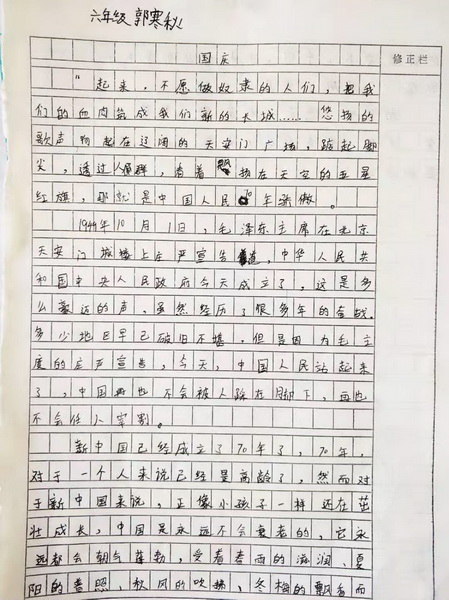 六年级 郭寒秋
国庆
修正栏
"起来，不愿做奴隶的人们，把我
们的血肉筑成我们新的长城……悠扬的
歌声响起在辽阔的天安门广场，踮起脚
尖，透过人群，看着飘扬在天空的五星
红旗，那就是中国人民70年骄傲。
1949年10月1日，毛泽东主席在北京
天安门城楼上庄严宣告道，中华人民共
和国中央人民政府今天成立了，这是多
么遥远的声，虽然经历了很多年的奋战，
多少地已早已破旧不堪，但是因为毛主
度的庄严宣告，今天，中国人民站起来
了，中国再也不会被人踩在脚下，再也
不会任人宰割。
新中国已经成立了70年了，70年，
对于一个人来说已经是高龄了，然而对
于新中国来说，正像小孩子一样还在茁
壮成长，中国是永远不会衰老的，它永
远都会朝气蓬勃，受着春雨的滋润、夏
阳的普照、秋风的吹拂，冬梅的飘香而